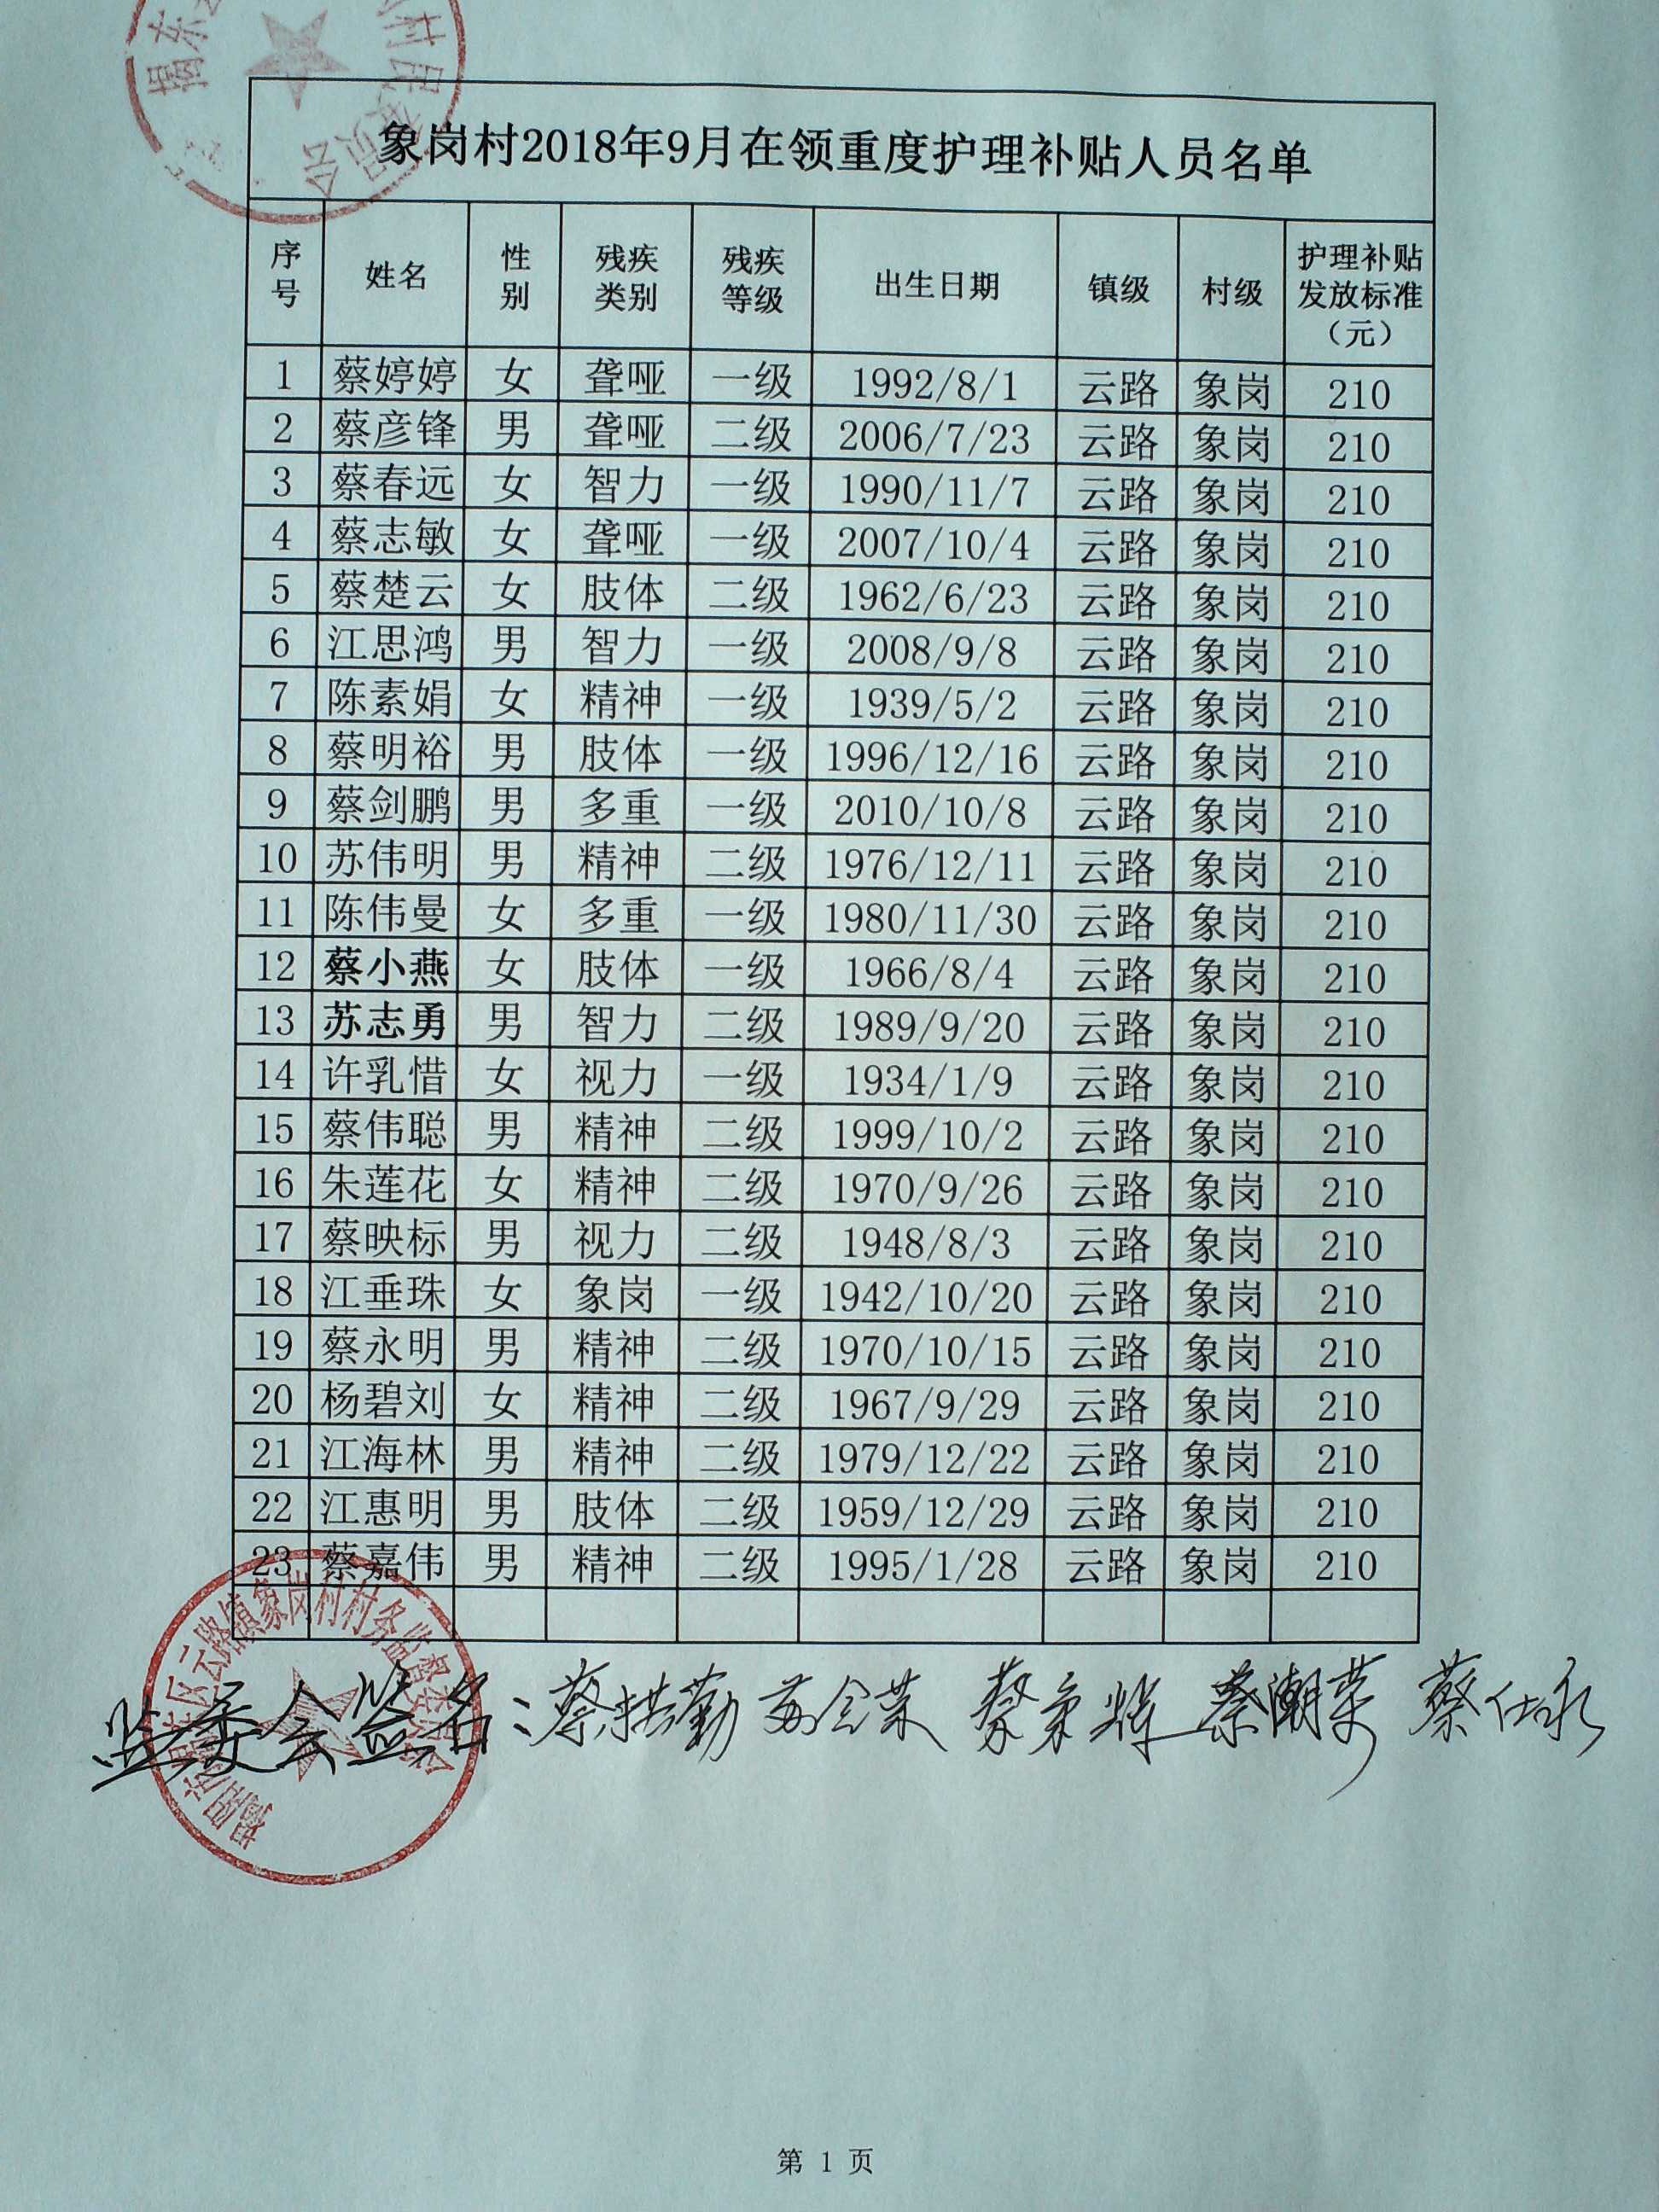 象岗村2018年9月在领重度护理补贴人员名单
序号 姓名 性别 残疾类别 残疾等级 出生日期 镇级 村级 护理补贴发放标准（元）
1 蔡婷婷 女 聋哑 一级 1992/8/1 云路 象岗 210
2 蔡彦锋 男 聋哑 二级 2006/7/23 云路 象岗 210
3 蔡春远 女 智力 一级 1990/11/7 云路 象岗 210
4 蔡志敏 女 聋哑 一级 2007/10/4 云路 象岗 210
5 蔡楚云 女 肢体 二级 1962/6/23 云路 象岗 210
6 江思鸿 男 智力 一级 2008/9/8 云路 象岗 210
7 陈素娟 女 精神 一级 1939/5/2 云路 象岗 210
8 蔡明裕 男 肢体 一级 1996/12/16 云路 象岗 210
9 蔡剑鹏 男 多重 一级 2010/10/8 云路 象岗 210
10 苏伟明 男 精神 二级 1976/12/11 云路 象岗 210
11 陈伟曼 女 多重 一级 1980/11/30 云路 象岗 210
12 蔡小燕 女 肢体 一级 1966/8/4 云路 象岗 210
13 苏志勇 男 智力 二级 1989/9/20 云路 象岗 210
14 许乳惜 女 视力 一级 1934/1/9 云路 象岗 210
15 蔡伟聪 男 精神 二级 1999/10/2 云路 象岗 210
16 朱莲花 女 精神 二级 1970/9/26 云路 象岗 210
17 蔡映标 男 视力 二级 1948/8/3 云路 象岗 210
18 江垂珠 女 象岗 一级 1942/10/20 云路 象岗 210
19 蔡永明 男 精神 二级 1970/10/15 云路 象岗 210
20 杨碧刘 女 精神 二级 1967/9/29 云路 象岗 210
21 江海林 男 精神 二级 1979/12/22 云路 象岗 210
22 江惠明 男 肢体 二级 1959/12/29 云路 象岗 210
23 蔡嘉伟 男 精神 二级 1995/1/28 云路 象岗 210
云路镇象岗村村务监督委员会
监委会签名：蔡拱勤 蔡潮荣 蔡仕永
第 1 页